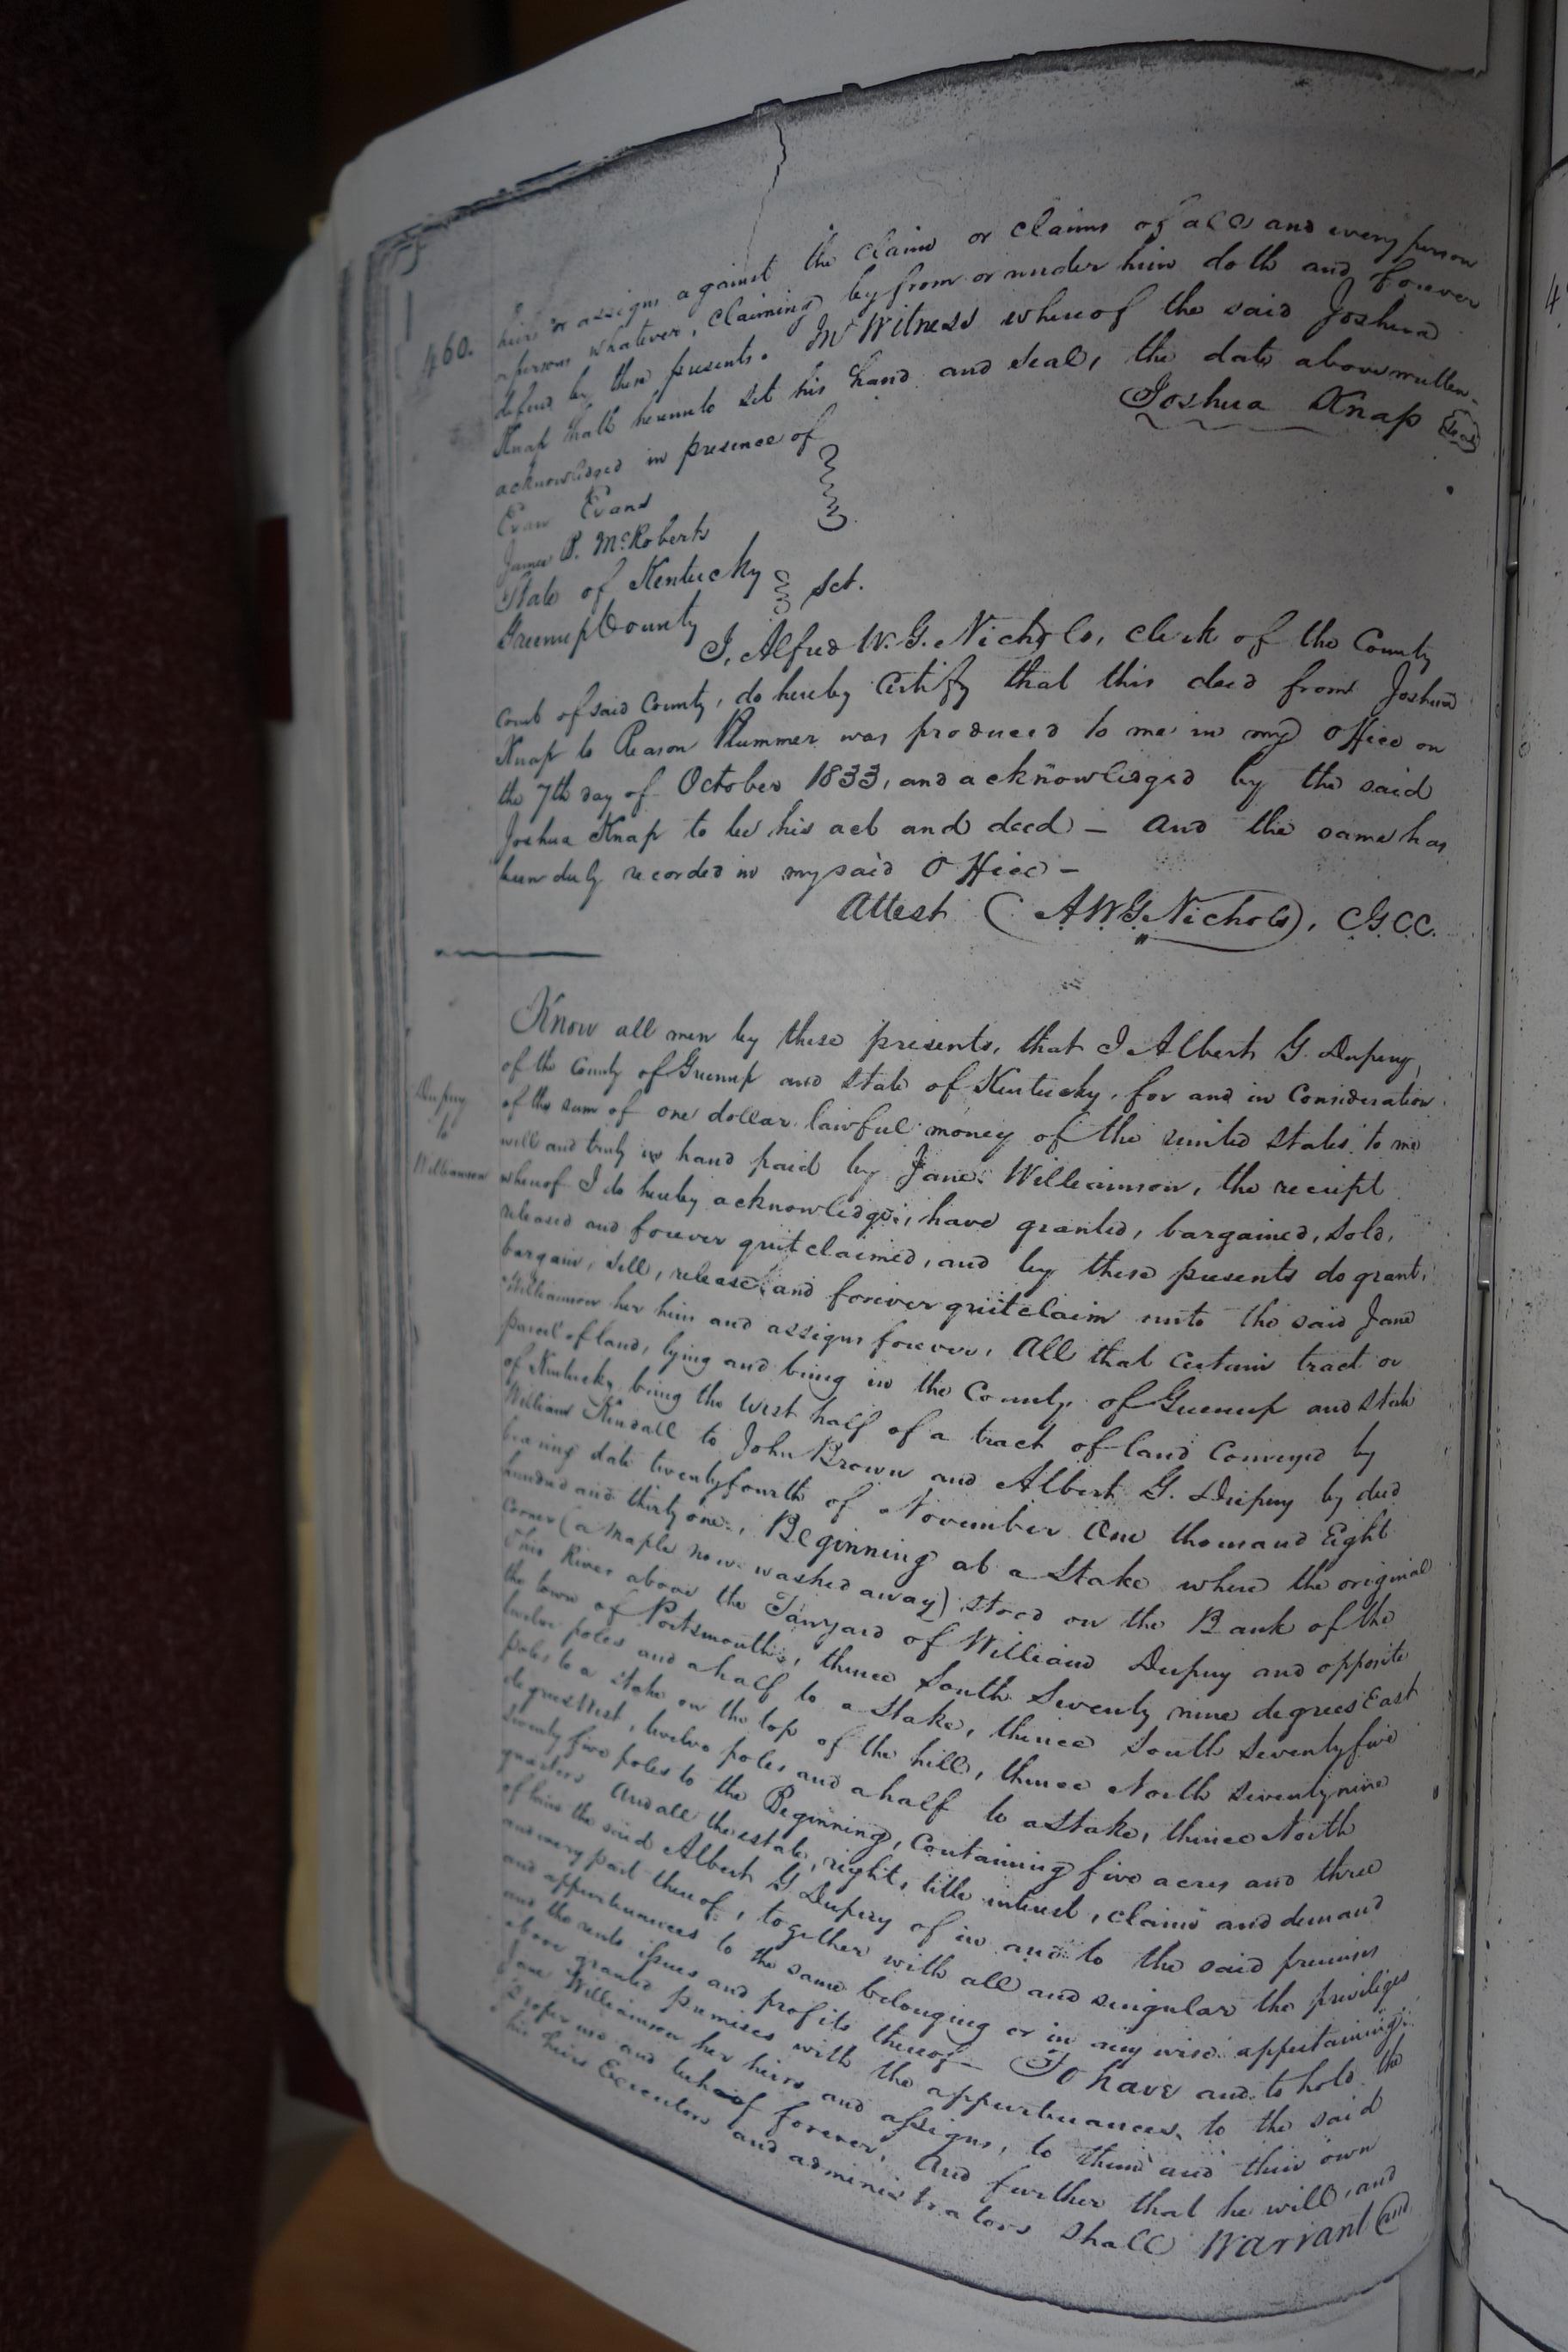 460.
heirs or assigns against the claim or claims of all and every person
or persons whatever, claiming by from or under him doth and forever
defend by these presents. In Witness whereof the said Joshua
Knap hath hereunto set his hand and seal, the date above written.
Joshua Knap Seal
acknowledged in presence of
Evan Evans
James P. McRoberts
State of Kentucky
Greenup County Sct.
I, Alfred W. G. Nichols, clerk of the County
Court of said County, do hereby Certify that this deed from Joshua
Knap to Reason Plummer was produced to me in my office on
the 7th day of October 1833, and acknowledged by the said
Joshua Knap to be his act and deed – and the same has
been duly recorded in my said office –
Attest (A W G Nichols), C.G.C.C.
Know all men by these presents, that I Albert G. Dupuy,
of the County of Greenup and State of Kentucky, for and in Consideration
Dupuy
of the sum of one dollar lawful money of the united States to me
to
well and truly in hand paid by Jane Williamson, the receipt
Williamson
whereof I do hereby acknowledge, have granted, bargained, sold,
released and forever quitclaimed, and by these presents do grant,
bargain, sell, release, and forever quitclaim unto the said Jane
Williamson her heirs and assigns forever, All that certain tract or
parcel of land, lying and being in the County of Greenup and State
of Kentucky, being the West half of a tract of land Conveyed by
William Kendall to John Brown and Albert G. Dupuy by deed
bearing date twentyfourth of November One thousand Eight
hundred and thirty one, Beginning at a Stake where the original
corner (a Maple now washed away) stood on the Bank of the
Ohio River above the Tanyard of William Dupuy and opposite
the town of Portsmouth, thence South Seventy nine degrees East
twelve poles and a half to a Stake, thence South seventyfive
poles to a stake on the top of the hill, thence North seventynine
degrees West, twelve poles and a half to a Stake, thence North
seventy five poles to the Beginning, Containing five acres and three
quarters And all the estate, right, title interest, claim and demand
of him the said Albert G Dupuy of in and to the said premises
and every part thereof, together with all and singular the priviliges
and appurtenances to the same belonging or in any wise appertaining,
and the rents issues and profits thereof – To have and to hold the
above granted premises with the appurtenances, to the said
Jane Williamson her heirs and assigns, to them and their own
proper use and behoof forever, And further that he will, and
his heirs Executors and administrators shall Warrant and